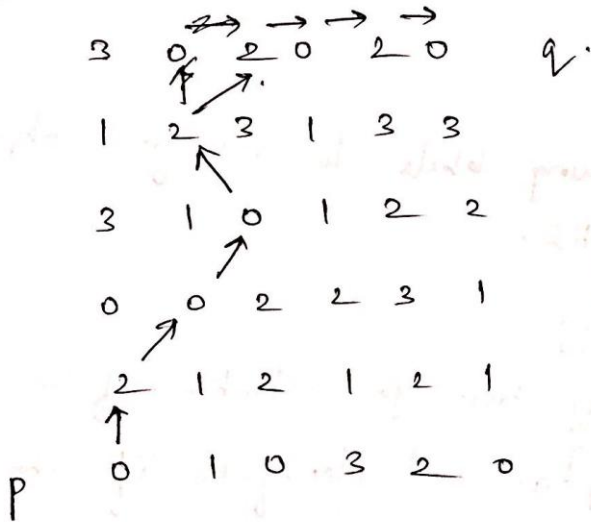 3 0 2 0 2 0 q.
1 2 3 1 3 3
3 1 0 1 2 2
0 0 2 2 3 1
2 1 2 1 2 1
p 0 1 0 3 2 0